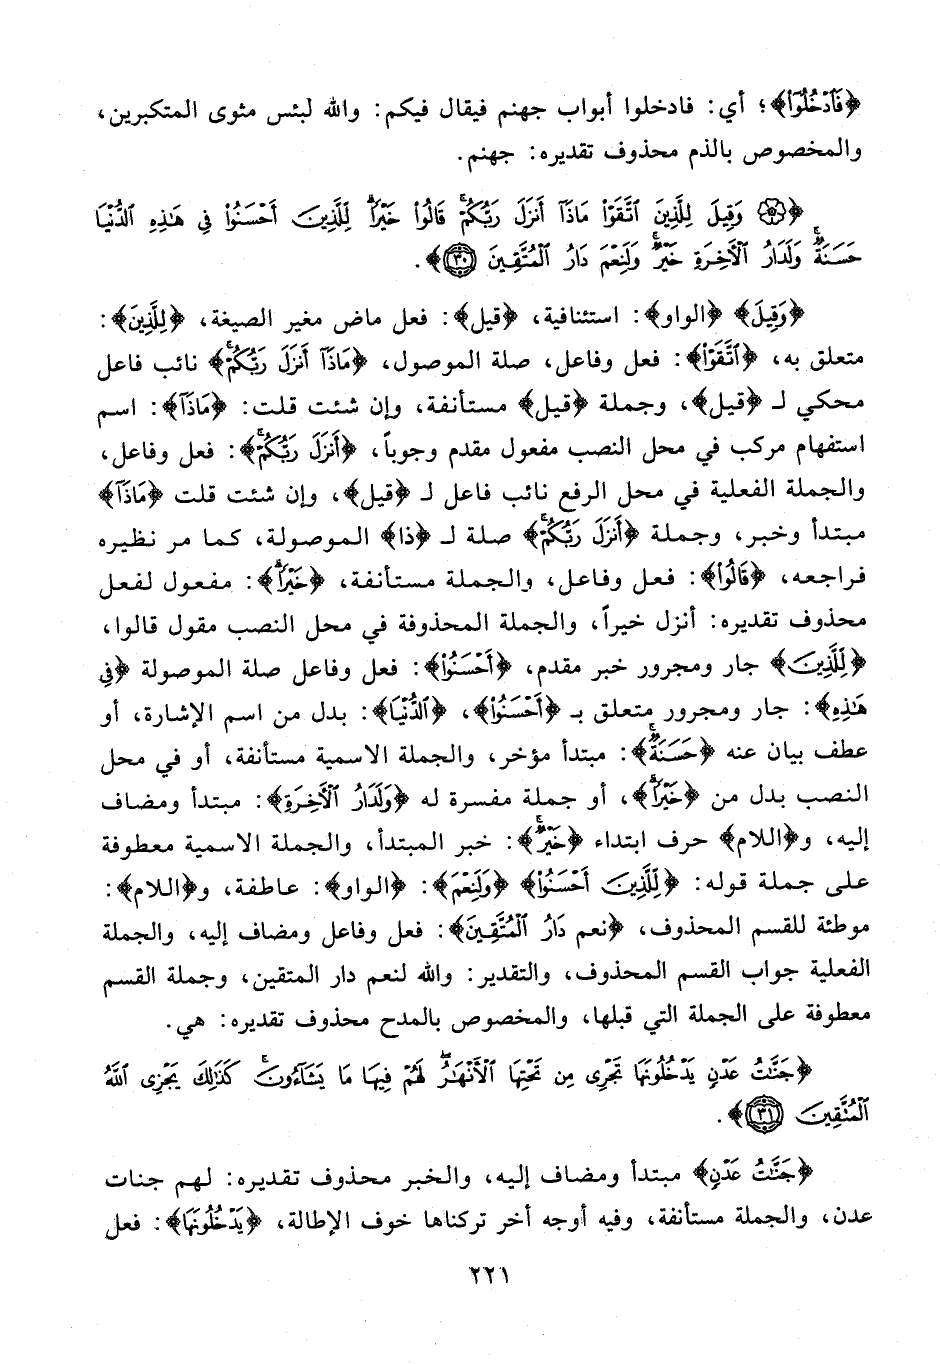 ﴿فَٱدْخُلُوٓا۟﴾؛ أي: فادخلوا أبواب جهنم فيقال فيكم: والله لبئس مثوى المتكبرين،
والمخصوص بالذم محذوف تقديره: جهنم.
﴿۞ وَقِيلَ لِلَّذِينَ ٱتَّقَوْا۟ مَاذَآ أَنزَلَ رَبُّكُمْ ۚ قَالُوا۟ خَيْرًا ۗ لِّلَّذِينَ أَحْسَنُوا۟ فِى هَـٰذِهِ ٱلدُّنْيَا
حَسَنَةٌ ۚ وَلَدَارُ ٱلْـَٔاخِرَةِ خَيْرٌ ۚ وَلَنِعْمَ دَارُ ٱلْمُتَّقِينَ ٣٠﴾.
﴿وَقِيلَ﴾ ﴿الواو﴾: استئنافية، ﴿قيل﴾: فعل ماض مغير الصيغة، ﴿لِلَّذِينَ﴾:
متعلق به، ﴿ٱتَّقَوْا۟﴾: فعل وفاعل، صلة الموصول، ﴿مَاذَآ أَنزَلَ رَبُّكُمْ ۚ﴾ نائب فاعل
محكي لـ ﴿قيل﴾، وجملة ﴿قيل﴾ مستأنفة، وإن شئت قلت: ﴿مَاذَآ﴾: اسم
استفهام مركب في محل النصب مفعول مقدم وجوباً، ﴿أَنزَلَ رَبُّكُمْ ۚ﴾: فعل وفاعل،
والجملة الفعلية في محل الرفع نائب فاعل لـ ﴿قيل﴾، وإن شئت قلت ﴿مَاذَآ﴾
مبتدأ وخبر، وجملة ﴿أَنزَلَ رَبُّكُمْ ۚ﴾ صلة لـ ﴿ذا﴾ الموصولة، كما مر نظيره
فراجعه، ﴿قَالُوا۟﴾: فعل وفاعل، والجملة مستأنفة، ﴿خَيْرًا ۗ﴾: مفعول لفعل
محذوف تقديره: أنزل خيراً، والجملة المحذوفة في محل النصب مقول قالوا،
﴿لِّلَّذِينَ﴾ جار ومجرور خبر مقدم، ﴿أَحْسَنُوا۟﴾: فعل وفاعل صلة الموصولة ﴿فِى
هَـٰذِهِ﴾: جار ومجرور متعلق بـ ﴿أَحْسَنُوا۟﴾، ﴿ٱلدُّنْيَا﴾: بدل من اسم الإشارة، أو
عطف بيان عنه ﴿حَسَنَةٌ ۚ﴾: مبتدأ مؤخر، والجملة الاسمية مستأنفة، أو في محل
النصب بدل من ﴿خَيْرًا ۗ﴾، أو جملة مفسرة له ﴿وَلَدَارُ ٱلْـَٔاخِرَةِ﴾: مبتدأ ومضاف
إليه، و﴿اللام﴾ حرف ابتداء ﴿خَيْرٌ ۚ﴾: خبر المبتدأ، والجملة الاسمية معطوفة
على جملة قوله: ﴿لِّلَّذِينَ أَحْسَنُوا۟﴾ ﴿وَلَنِعْمَ﴾: ﴿الواو﴾: عاطفة، و﴿اللام﴾:
موطئة للقسم المحذوف، ﴿نعم دَارُ ٱلْمُتَّقِينَ﴾: فعل وفاعل ومضاف إليه، والجملة
الفعلية جواب القسم المحذوف، والتقدير: والله لنعم دار المتقين، وجملة القسم
معطوفة على الجملة التي قبلها، والمخصوص بالمدح محذوف تقديره: هي.
﴿جَنَّـٰتُ عَدْنٍ يَدْخُلُونَهَا تَجْرِى مِن تَحْتِهَا ٱلْأَنْهَـٰرُ ۖ لَهُمْ فِيهَا مَا يَشَآءُونَ ۚ كَذَٰلِكَ يَجْزِى ٱللَّهُ
ٱلْمُتَّقِينَ ٣١﴾.
﴿جَنَّـٰتُ عَدْنٍ﴾ مبتدأ ومضاف إليه، والخبر محذوف تقديره: لهم جنات
عدن، والجملة مستأنفة، وفيه أوجه أخر تركناها خوف الإطالة، ﴿يَدْخُلُونَهَا﴾: فعل
٢٢١